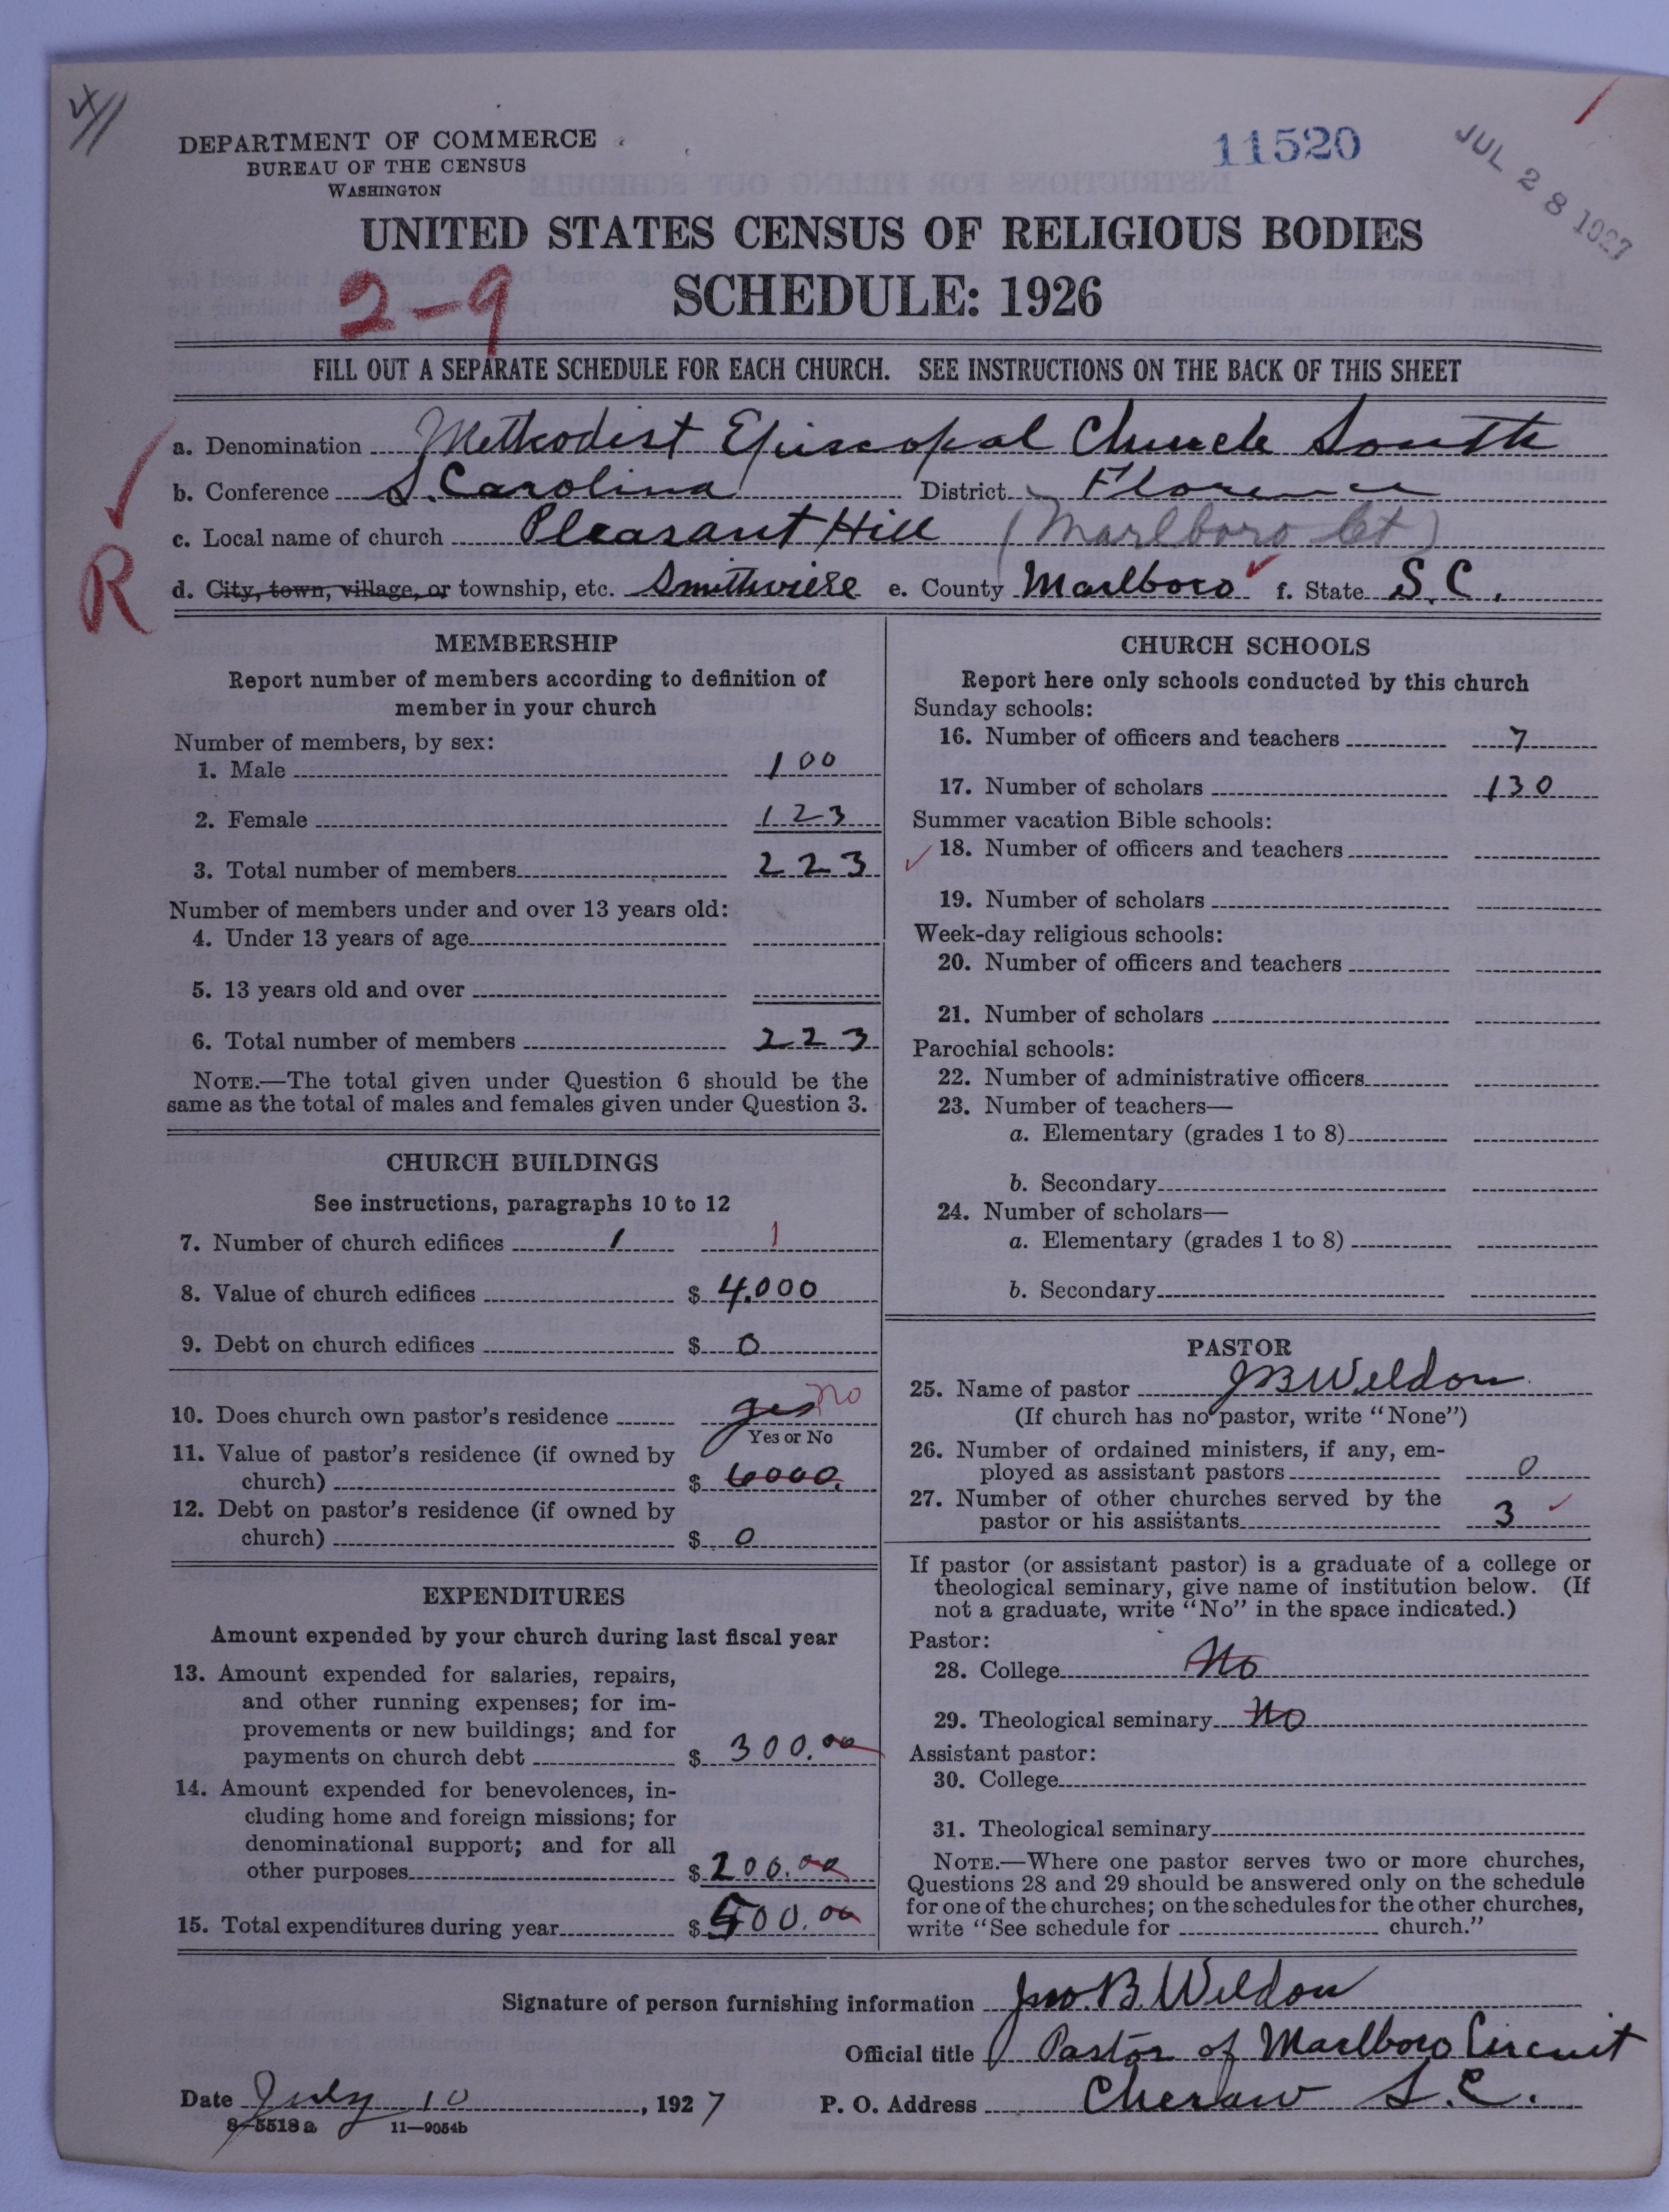 DEPARTMENT OF COMMERCE
BUREAU OF THE CENSUS
WASHINGTON
11520
JUL 28 1927
UNITED STATES CENSUS OF RELIGIOUS BODIES
SCHEDULE: 1926
2-9
FILL OUT A SEPARATE SCHEDULE FOR EACH CHURCH. SEE INSTRUCTIONS ON THE BACK OF THIS SHEET
a. Denomination Methodist Episcopal Church South
b. Conference S. Carolina District Florence
c. Local name of church Pleasant Hill (Marlboro Ct)
R
d. City, town, village, or township, etc. Smithville e. County Marlboro f. State S.C.
MEMBERSHIP
Report number of members according to definition of
member in your church
Number of members, by sex:
1. Male 100
2. Female 123
3. Total number of members 223
Number of members under and over 13 years old:
4. Under 13 years of age
5. 13 years old and over
6. Total number of members 223
NOTE.—The total given under Question 6 should be the
same as the total of males and females given under Question 3.
CHURCH BUILDINGS
See instructions, paragraphs 10 to 12
7. Number of church edifices 1 1
8. Value of church edifices $ 4.000
9. Debt on church edifices $ 0
10. Does church own pastor's residence yes no
Yes or No
11. Value of pastor's residence (if owned by
church) $ 6000.
12. Debt on pastor's residence (if owned by
church) $ 0
EXPENDITURES
Amount expended by your church during last fiscal year
13. Amount expended for salaries, repairs,
and other running expenses; for im-
provements or new buildings; and for
payments on church debt $ 300.00
14. Amount expended for benevolences, in-
cluding home and foreign missions; for
denominational support; and for all
other purposes $ 200.00
15. Total expenditures during year $ 500.00
CHURCH SCHOOLS
Report here only schools conducted by this church
Sunday schools:
16. Number of officers and teachers 7
17. Number of scholars 130
Summer vacation Bible schools:
18. Number of officers and teachers
19. Number of scholars
Week-day religious schools:
20. Number of officers and teachers
21. Number of scholars
Parochial schools:
22. Number of administrative officers
23. Number of teachers—
a. Elementary (grades 1 to 8)
b. Secondary
24. Number of scholars—
a. Elementary (grades 1 to 8)
b. Secondary
PASTOR
25. Name of pastor J B Weldon
(If church has no pastor, write "None")
26. Number of ordained ministers, if any, em-
ployed as assistant pastors 0
27. Number of other churches served by the
pastor or his assistants 3
If pastor (or assistant pastor) is a graduate of a college or
theological seminary, give name of institution below. (If
not a graduate, write "No" in the space indicated.)
Pastor:
28. College No
29. Theological seminary No
Assistant pastor:
30. College
31. Theological seminary
NOTE.—Where one pastor serves two or more churches,
Questions 28 and 29 should be answered only on the schedule
for one of the churches; on the schedules for the other churches,
write "See schedule for church."
Signature of person furnishing information Jno. B. Weldon
Official title Pastor of Marlboro Circuit
Date July 10, 1927 P. O. Address Cheraw S.C.
8-5518a 11-9054b